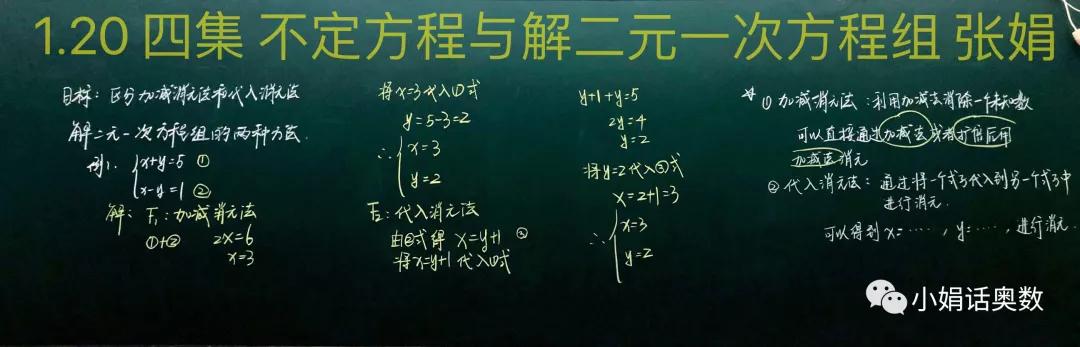 1.20 四集 不定方程与解二元一次方程组 张娟
目标：区分加减消元法和代入消元法
解二元一次方程组的两种方法.
例1. { x+y=5 ①
x-y=1 ②
解：F₁：加减消元法
①+② 2x=6
x=3
将x=3代入①式
y=5-3=2
∴ { x=3
y=2
F₂：代入消元法
由②式得 x=y+1 ③
将x=y+1代入①式
y+1+y=5
2y=4
y=2
将y=2代入③式
x=2+1=3
∴ { x=3
y=2
☆ ① 加减消元法：利用加减法消除一个未知数
可以直接通过加减法或者扩倍后用
加减法消元
② 代入消元法：通过将一个式子代入到另一个式子中
进行消元.
可以得到x=……，y=……，进行消元.
小娟话奥数